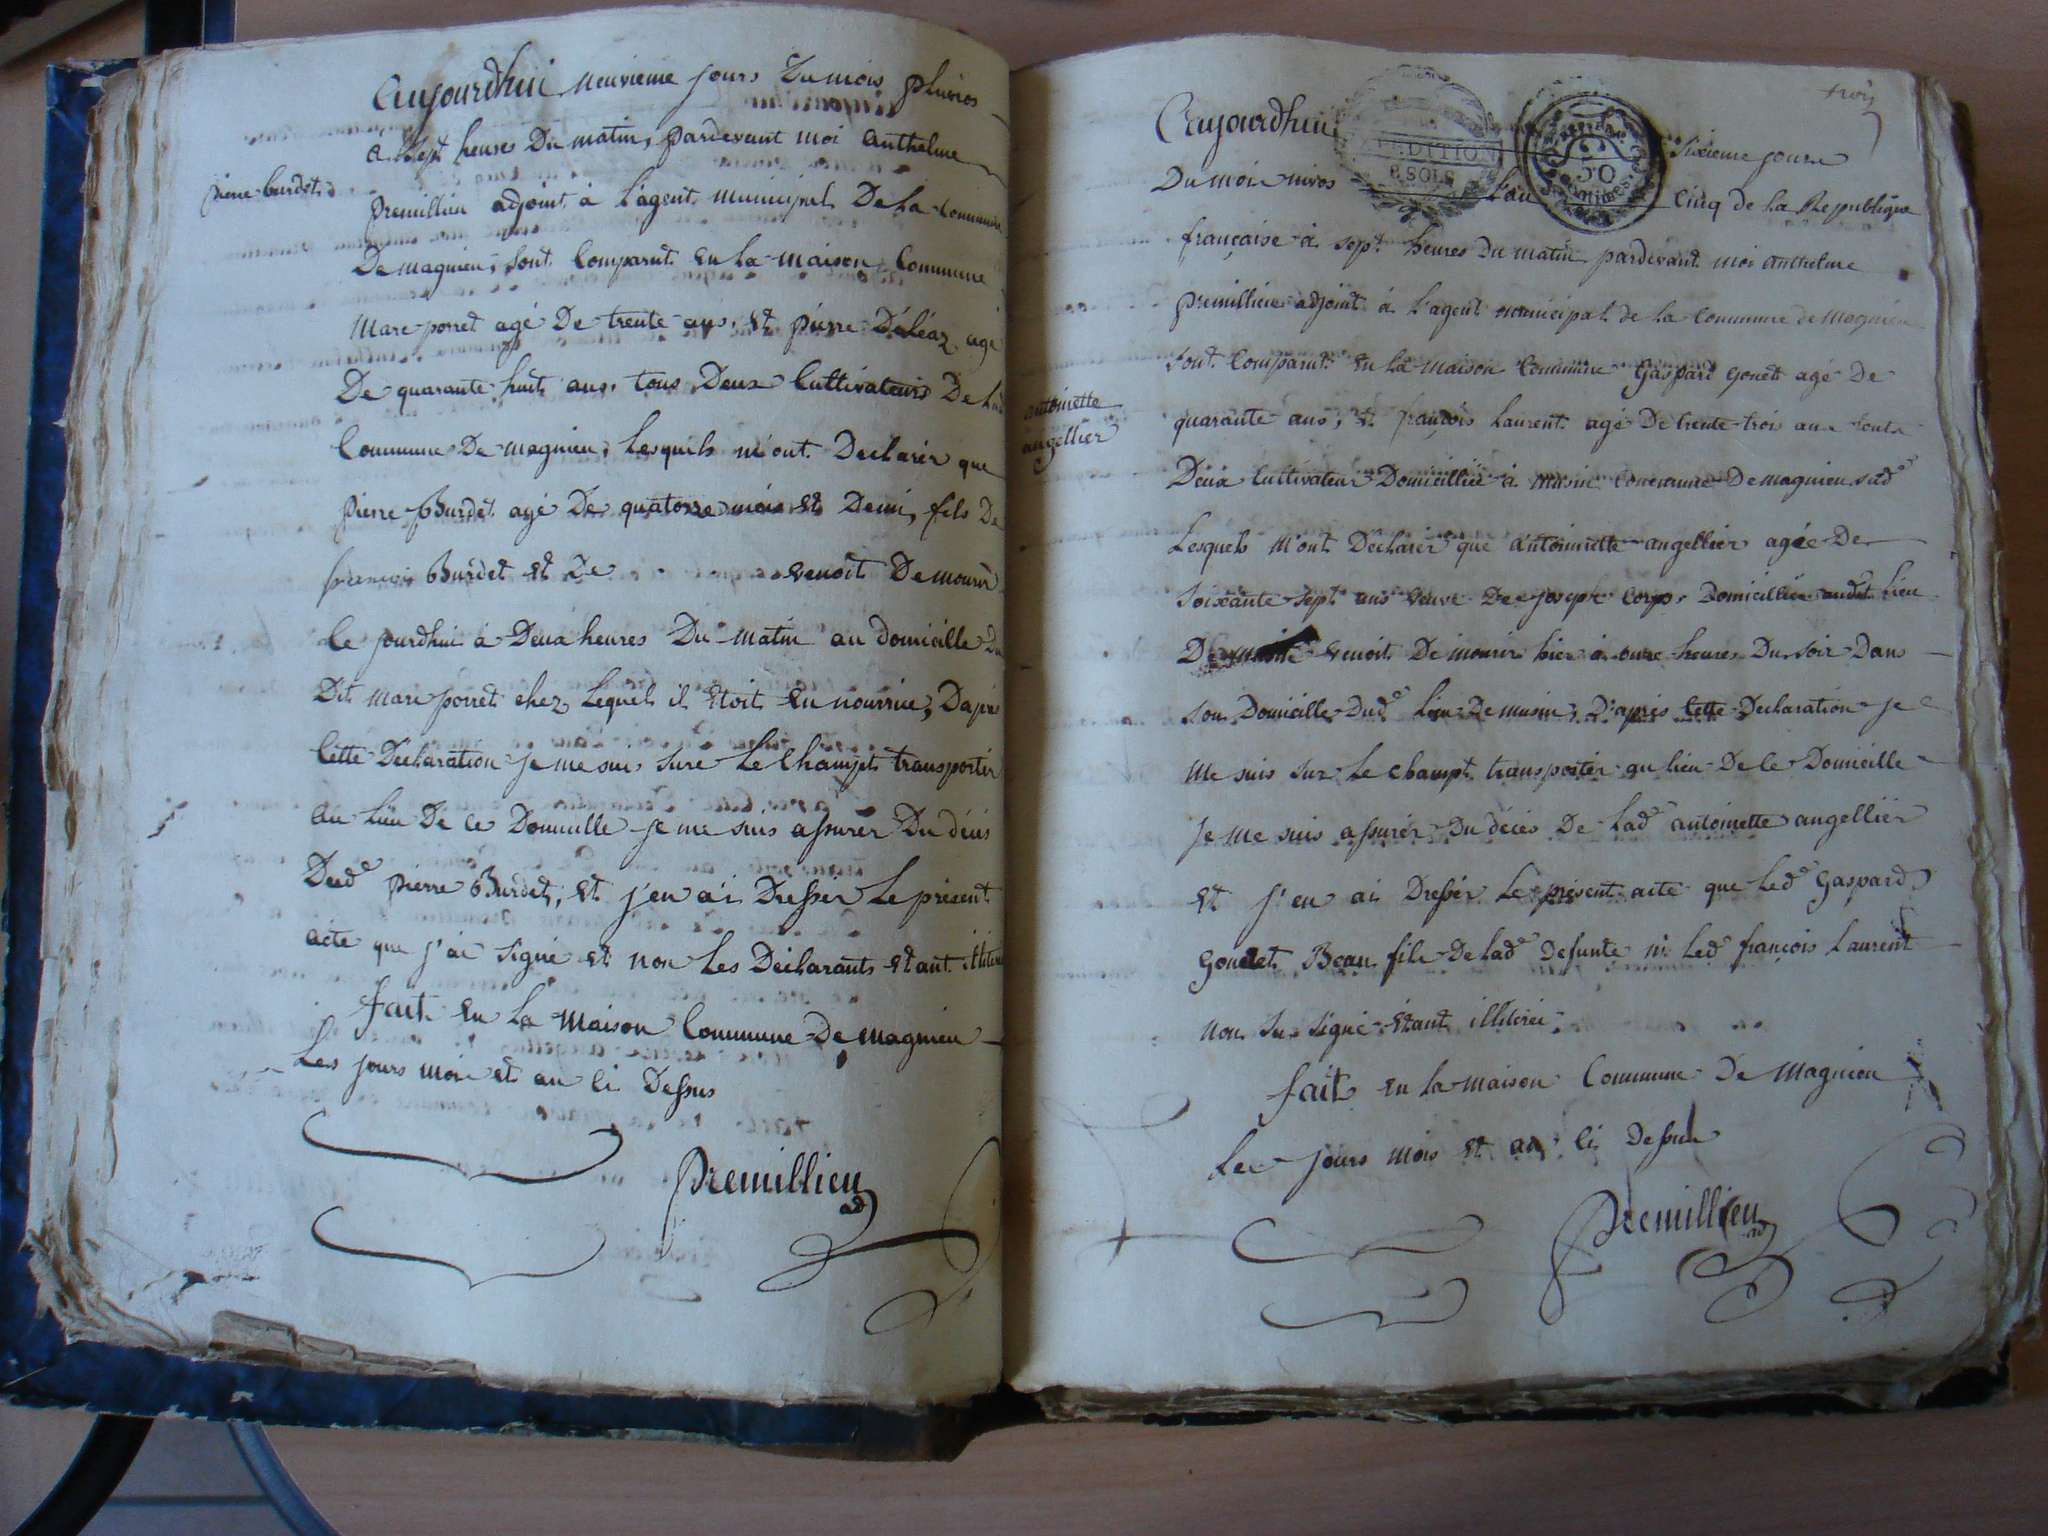 Aujourdhui neuvieme jours Du mois pluvios
a sept heures Du matin, pardevant moi anthelme
pierre burdet
premillieu adjoint à l'agent municipal De la Commune
De magnieu, sont Comparut en la maison Commune
Marc porret agé De trente ans, et pierre Déléaz agé
De quarante huit ans, tous Deux Cultivateurs De lad
Commune De magnieu, Lesquels m'ont Declarér que
pierre Burdet agé De quatorze mois et Demi, fils De
francois Burdet et De venoit De mourir
Ce jourdhui à Deux heures Du matin au domicille Du
Dit marc porret chez Lequel il étoit en nourrice, Dapres
Cette Déclaration je me suis sure Le Champt transporter
au lieu De ce Domicille je me suis assurer Du décés
Dudᵉ pierre Burdet, et j'en ai Dresser Le présent
acte que j'ai signé et non Les Déclarants etant illiteré
fait en La Maison Commune De magnieu
Les jours mois et an Ci Dessus
premillieu
ad
trois
Aujourdhui sixieme jours
EXPEDITION
8 SOLS
50
centimes
Du mois nivos L'an Cinq de la Republique
française à sept heures Du matin pardevant moi anthelme
premillieu adjoint à L'agent municipal de la Commune de magnieu
sont Comparut en la maison Commune Gaspard Gonet agé De
antoinette
angellier
quarante ans, et françois Laurent agé De trente trois ans tous
Deux Cultivateur Domicillié à musin Commune De magnieu sudᵉ
Lesquels M'ont Déclarér que antoinette angellier agée De
soixante sept ans veuve De joseph Corps Domicillié audit Lieu
De venoit De mourir hier à onze heures Du soir Dans
son Domicille Dudᵉ Lieu De musin, D'après Cette Declaration je
me suis sur Le champt transporter au lieu De Ce Domicille
je me suis assurér Du décés De Ladᵉ antoinette angellier
et j'en ai Dressér Le présent acte que Ledᵉ Gaspard
Gonet Beau fils De Ladᵉ Defunte ni Ledᵉ françois Laurent
non su signé étant illiteré
fait en la maison Commune De Magnieu
Les jours mois et an Ci Dessus
premillieu
ad